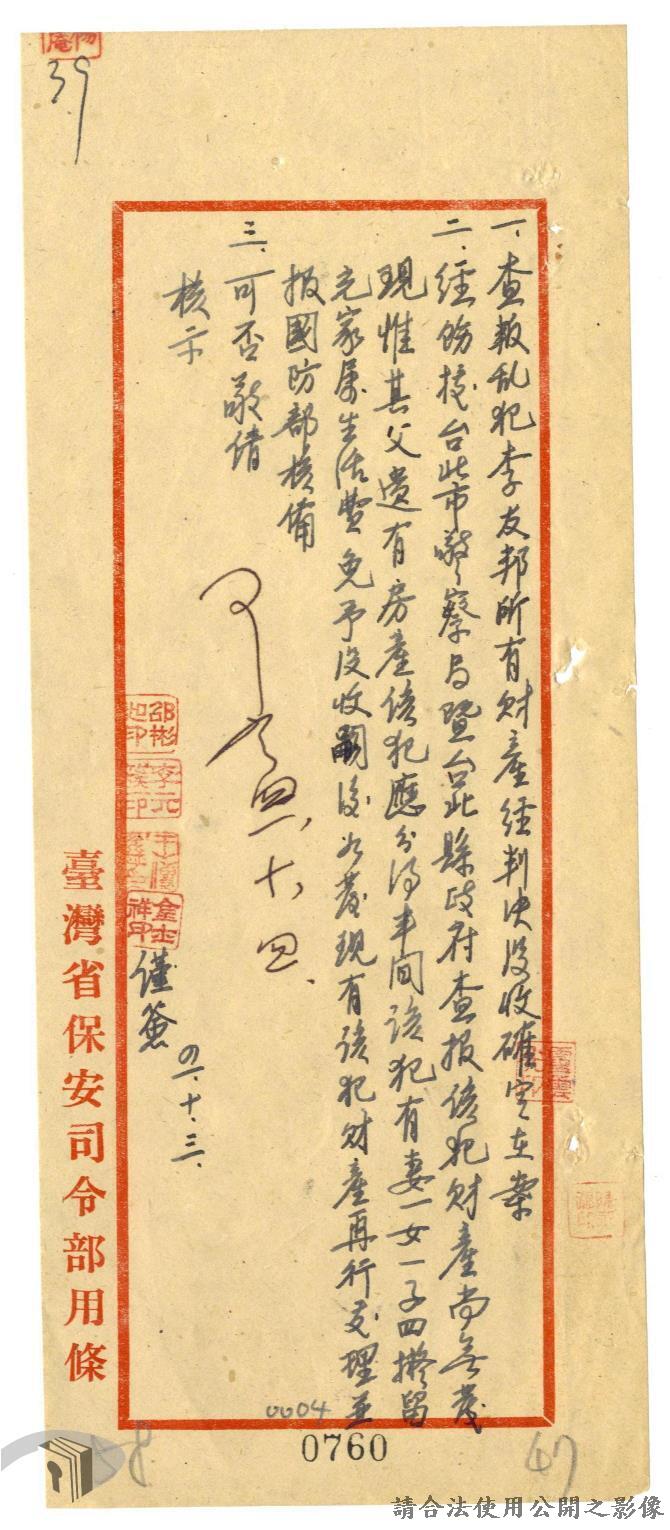 39
一、查叛乱犯李友邦所有財產經判决没收確定在案
二、經飭据台北市警察局暨台北縣政府查报該犯財產尚無發
現惟其父遺有房產該犯應分得半间該犯有妻一女一子四擬留
充家屬生活費免予没收嗣後如發現有該犯財產再行處理並
报國防部核備
三、可否敬請
核示
可
四一、十、四、
邵彬
金士
祥印
謹簽
四一、十、三、
臺灣省保安司令部用條
0004
0760
47
請合法使用公開之影像